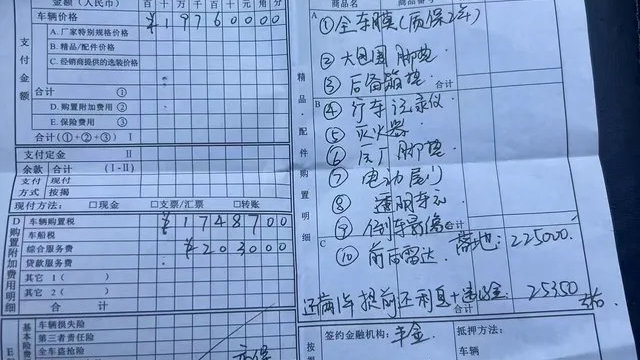 金额（人民币） 百 十 万 千 百 十 元 角 分 百 十 万 千 百 十 元 角 分
车辆价格 ¥19760000
支付金额
A. 厂家特别规格价格
B. 精品/配件价格
C. 经销商提供的选装价格
合计 ①
D. 购置附加费用 ②
E. 保险费用 ③
合计（①+②+③） I
支付定金 II
余款 合计 （I-II）
支付 现付
方式 按揭
现付方法： □现金 □支票/汇票 □转账
D 购置附加费用明细
车辆购置税 ¥1748700
车船税
综合服务费 ¥203000
贷款服务费
其它 1（ ）
其它 2（ ）
合 计
E
基本险费
车辆损失险
第三者责任险
全车盗抢险
商品名 商品番号
精品·配件购置明细
A
①全车膜（质保2年）
②大包围脚垫
③后备箱垫
合计
B
④行车记录仪
⑤灭火器
⑥原厂脚垫
⑦电动尾门
⑧透明车衣
⑨倒车影像
合计
C
⑩前后雷达
落地：225000.
还两年提前还利息+违约金：25350
左右
按揭
签约金融机构：丰金 抵押方法：
车辆